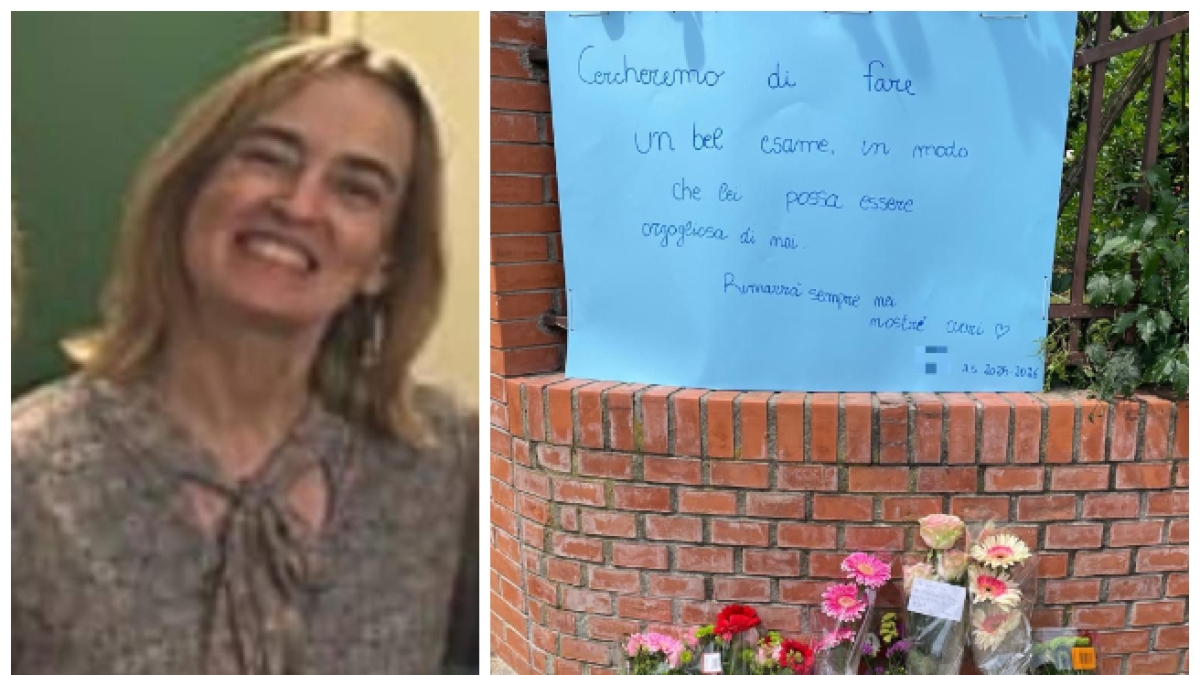 Cercheremo di fare
un bel esame, in modo
che lei possa essere
orgogliosa di noi.
Rimarrà sempre nei
nostri cuori ♡
A.S. 2025-2026